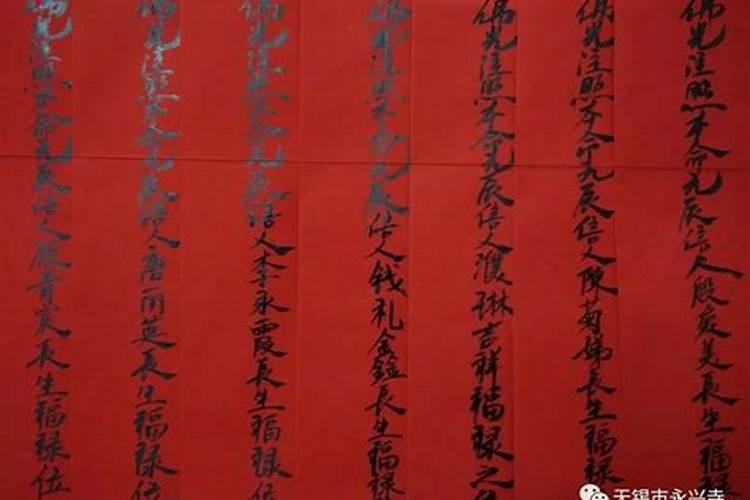 佛光注照本命元辰信人殷爱美長生福禄
佛光注照本命元辰信人陳菊娣長生福禄
佛光注照本命元辰信人濮琳吉祥福禄之
佛光注照本命元辰信人钱礼金鑫長生福禄
佛光注照本命元辰信人李永霞長生福禄位
佛光注照本命元辰信人唐丽英長生福禄位
佛光注照本命元辰信人殷青宸長生福禄位
无锡市永兴寺